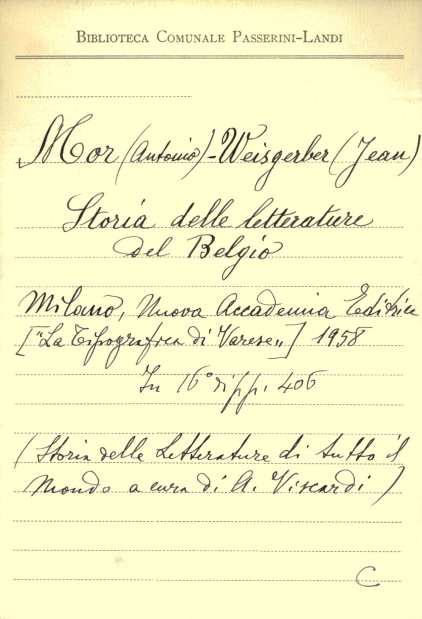 BIBLIOTECA COMUNALE PASSERINI-LANDI
Mor (Antonio) - Weisgerber (Jean)
Storia delle letterature
del Belgio
Milano, Nuova Accademia Editrice
["La Tipografica di Varese"] 1958
In 16° di pp. 406
(Storia delle Letterature di tutto il
Mondo a cura di A. Viscardi)
C